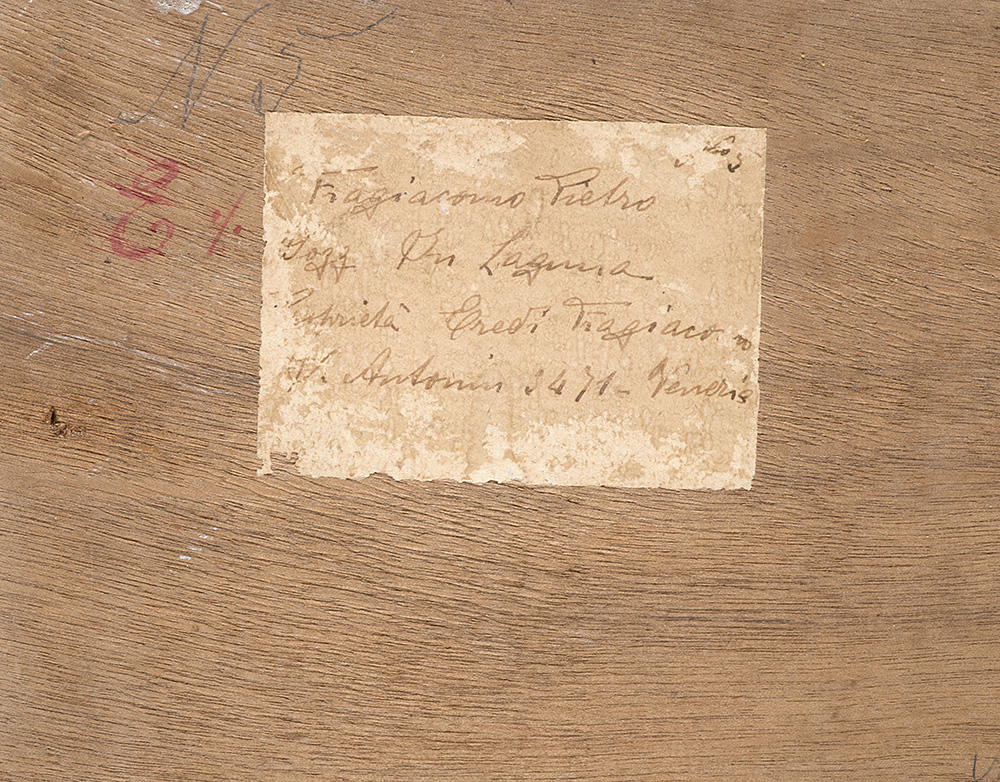 N 5
E
Fragiacomo Pietro
Sogg In Laguna
Proprietà Eredi Fragiaco mo
S. Antonin 3471 - Venezia